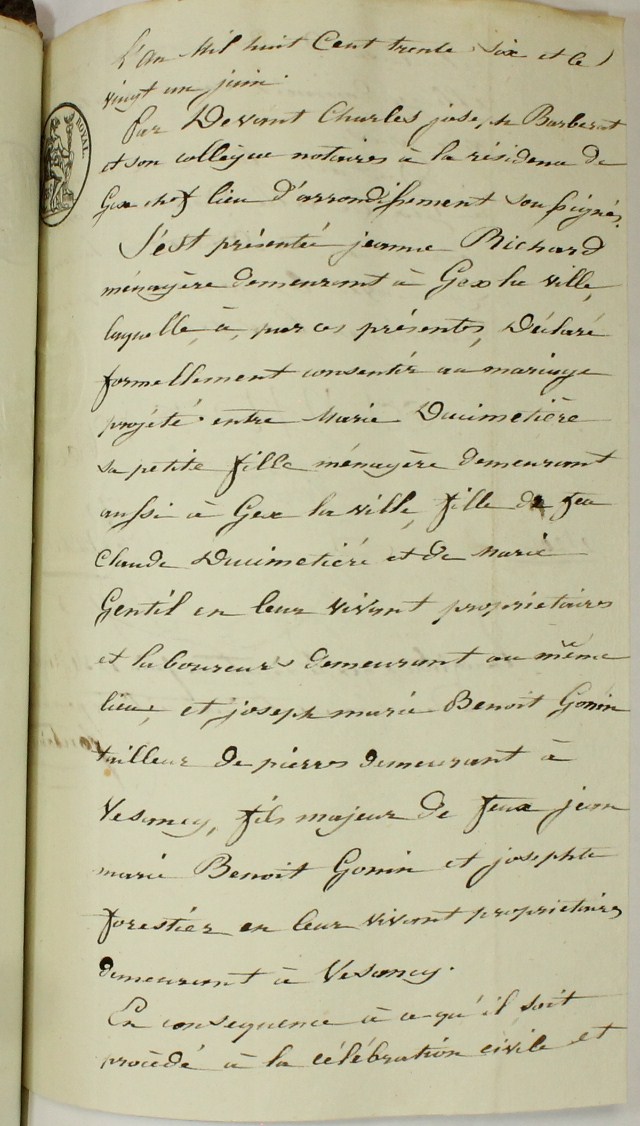 L'An Mil huit Cent trente Six et le
vingt un juin.
Par Devant Charles joseph Barberat
et son collègue notaires à la résidence de
Gex chef lieu d'arrondissement soussignés.
S'est présentée jeanne Richard
ménagère demeurant à Gex la ville,
laquelle, à, par ces présentes, Déclaré
formellement consentir au mariage
projété entre Marie Ducimetière
sa petite fille ménagère demeurant
aussi à Gex la ville, fille de feu
Claude Ducimetiéré et de Marie
Gentil en leur vivant proprietaires
et laboureurs demeurant au même
lieu, et joseph marie Benoit Gonin
tailleur de pierres demeurant à
Vesancy, fils majeur de feux jean
marie Benoit Gonin et josephte
forestier en leur vivant proprietaires
demeurant à Vesancy.
En consequence à ce qu'il soit
procédé à la célébration civile et
ROYAL